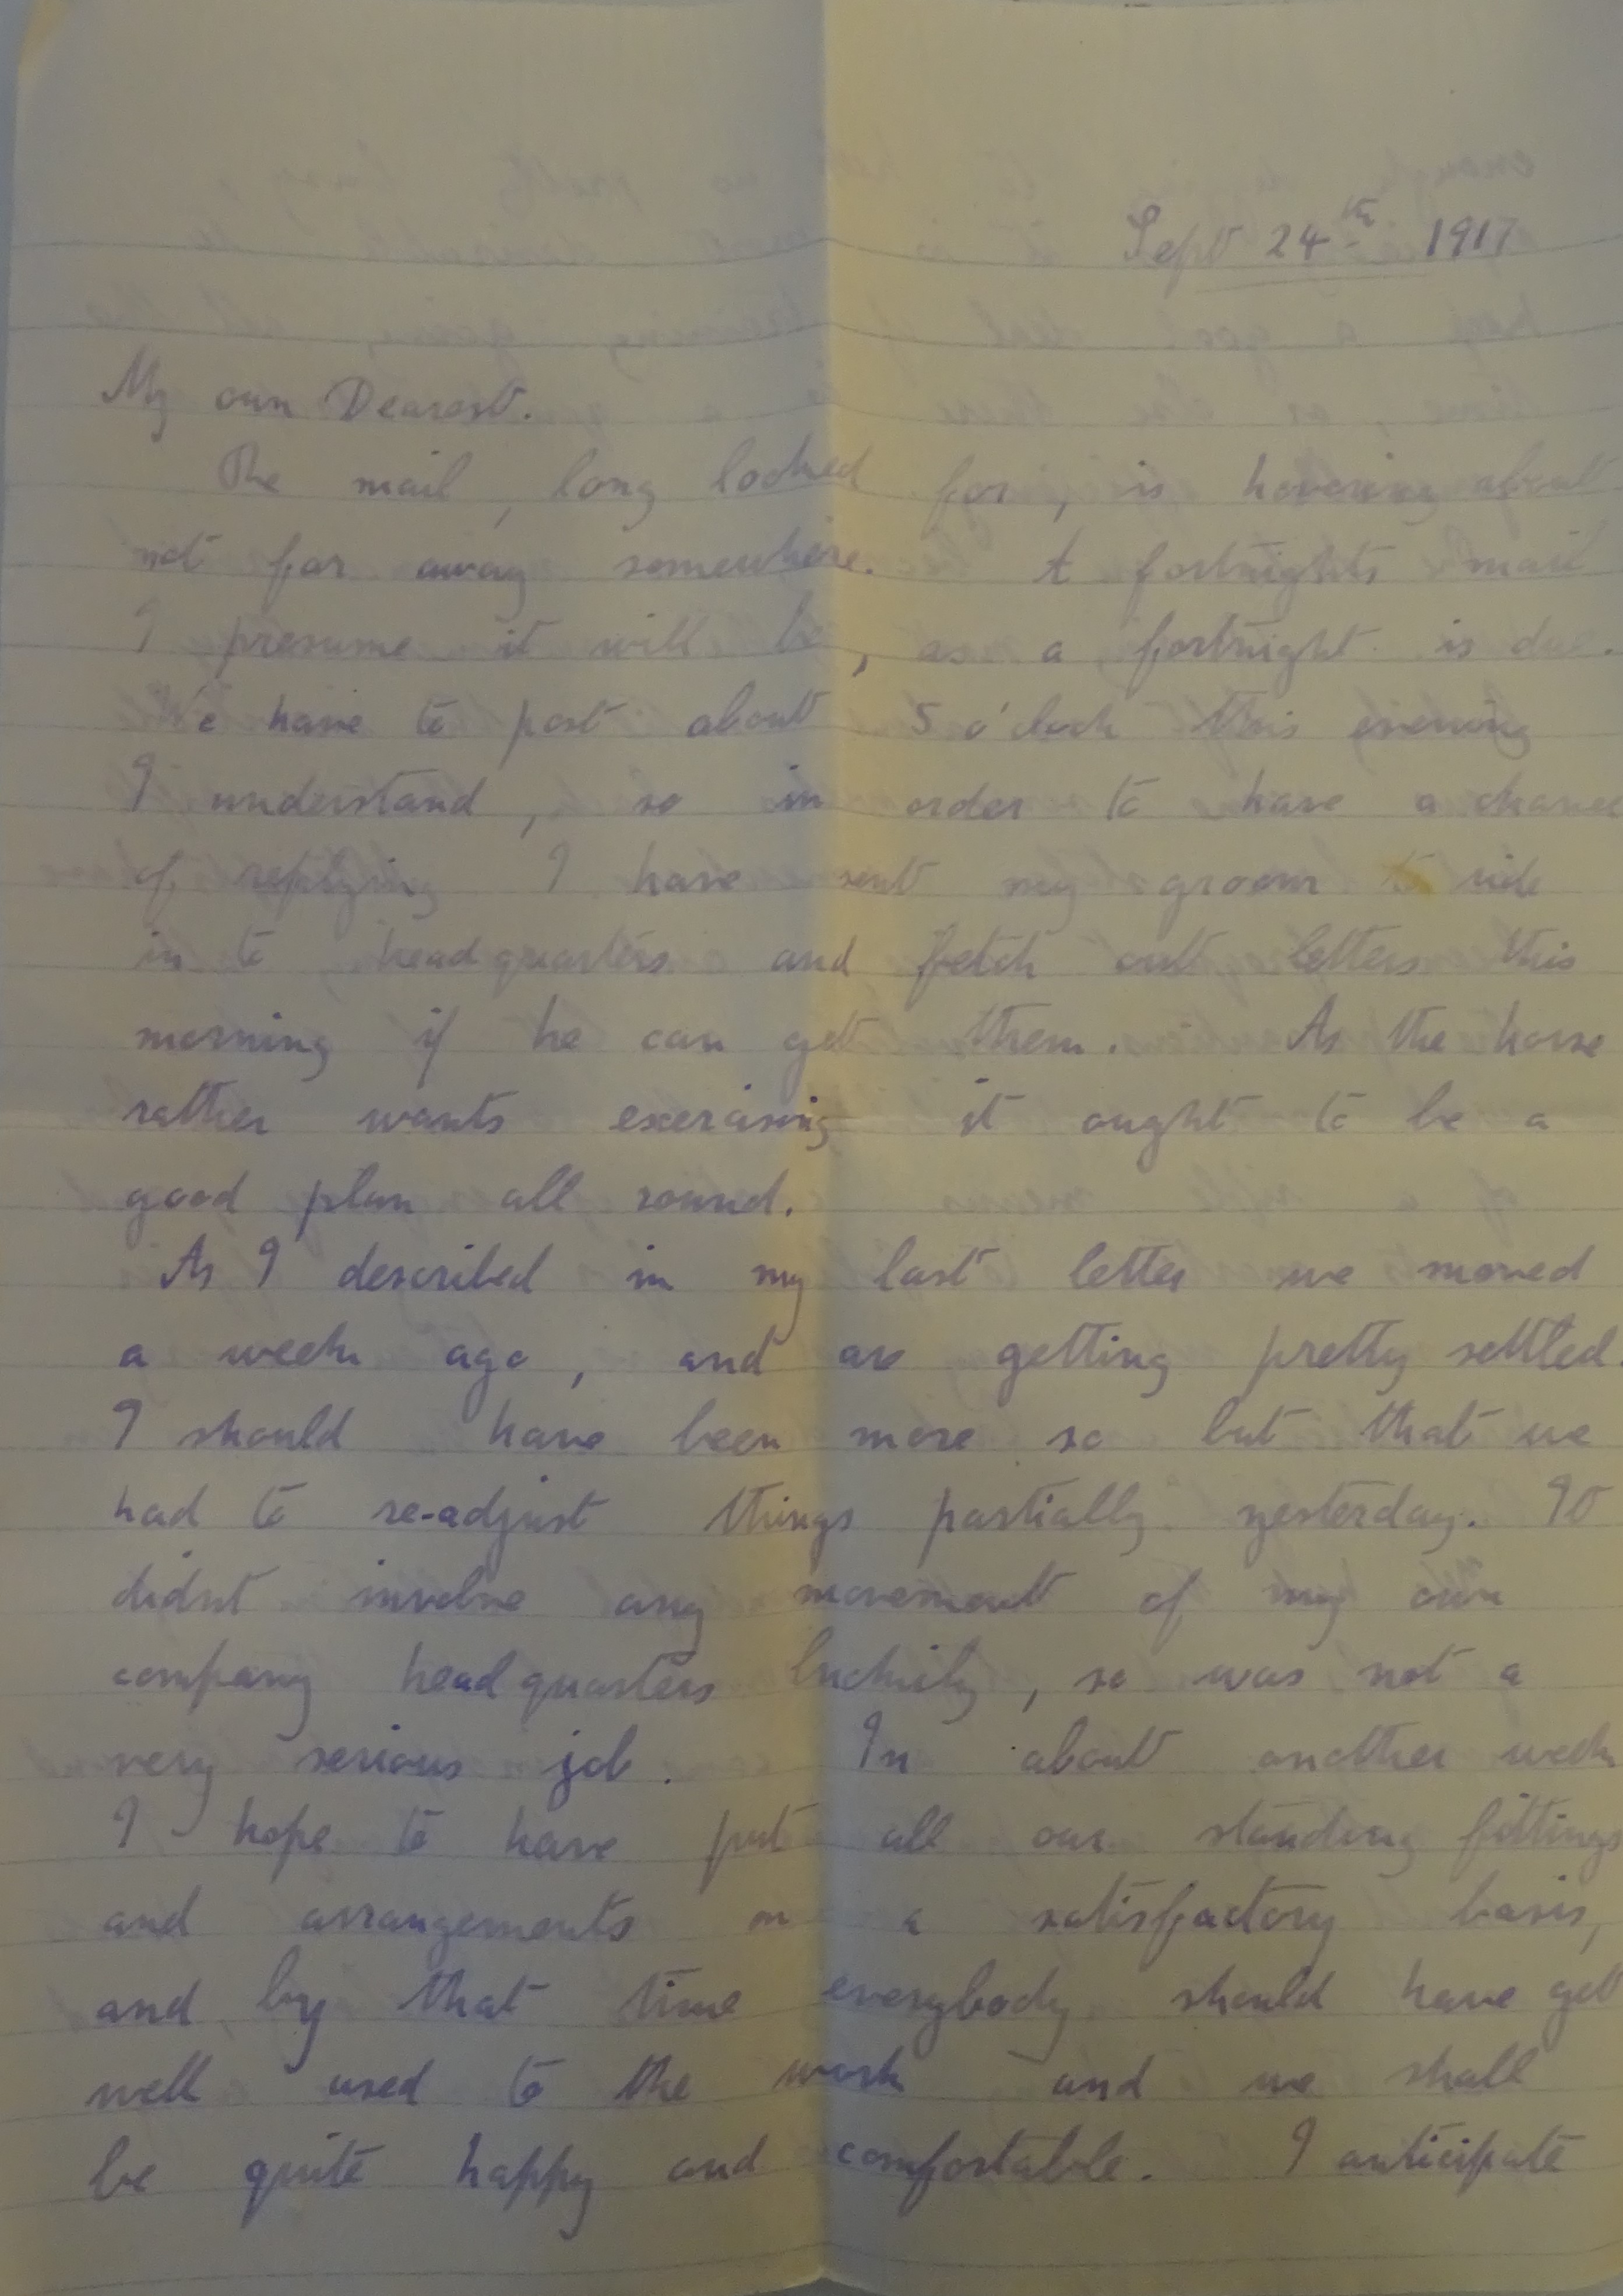 Sept 24th 1917
My own Dearest.
The mail, long looked for, is hovering about
not far away somewhere. A fortnights mail
I presume it will be, as a fortnight is due.
We have to post about 5 o'clock this evening
I understand, so in order to have a chance
of replying I have sent my groom to ride
in to headquarters and fetch out letters this
morning if he can get them. As the horse
rather wants exercising it ought to be a
good plan all round.
As I described in my last letter we moved
a week ago, and are getting pretty settled.
I should have been more so but that we
had to re-adjust things partially yesterday. It
didnt involve any movement of my own
company headquarters luckily, so was not a
very serious job. In about another week
I hope to have put all our standing fittings
and arrangements on a satisfactory basis,
and by that time everybody should have got
well used to the work and we shall
be quite happy and comfortable. I anticipate